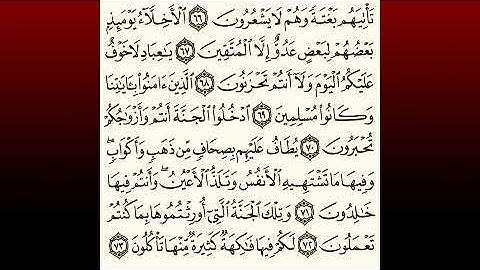 تَأْتِيَهُم بَغْتَةً وَهُمْ لَا يَشْعُرُونَ ٦٦ ٱلْأَخِلَّآءُ يَوْمَئِذٍۭ
بَعْضُهُمْ لِبَعْضٍ عَدُوٌّ إِلَّا ٱلْمُتَّقِينَ ٦٧ يَٰعِبَادِ لَا خَوْفٌ
عَلَيْكُمُ ٱلْيَوْمَ وَلَآ أَنتُمْ تَحْزَنُونَ ٦٨ ٱلَّذِينَ ءَامَنُوا۟ بِـَٔايَٰتِنَا
وَكَانُوا۟ مُسْلِمِينَ ٦٩ ٱدْخُلُوا۟ ٱلْجَنَّةَ أَنتُمْ وَأَزْوَٰجُكُمْ
تُحْبَرُونَ ٧٠ يُطَافُ عَلَيْهِم بِصِحَافٍ مِّن ذَهَبٍ وَأَكْوَابٍ ۖ
وَفِيهَا مَا تَشْتَهِيهِ ٱلْأَنفُسُ وَتَلَذُّ ٱلْأَعْيُنُ ۖ وَأَنتُمْ فِيهَا
خَٰلِدُونَ ٧١ وَتِلْكَ ٱلْجَنَّةُ ٱلَّتِىٓ أُورِثْتُمُوهَا بِمَا كُنتُمْ
تَعْمَلُونَ ٧٢ لَكُمْ فِيهَا فَٰكِهَةٌ كَثِيرَةٌ مِّنْهَا تَأْكُلُونَ ٧٣